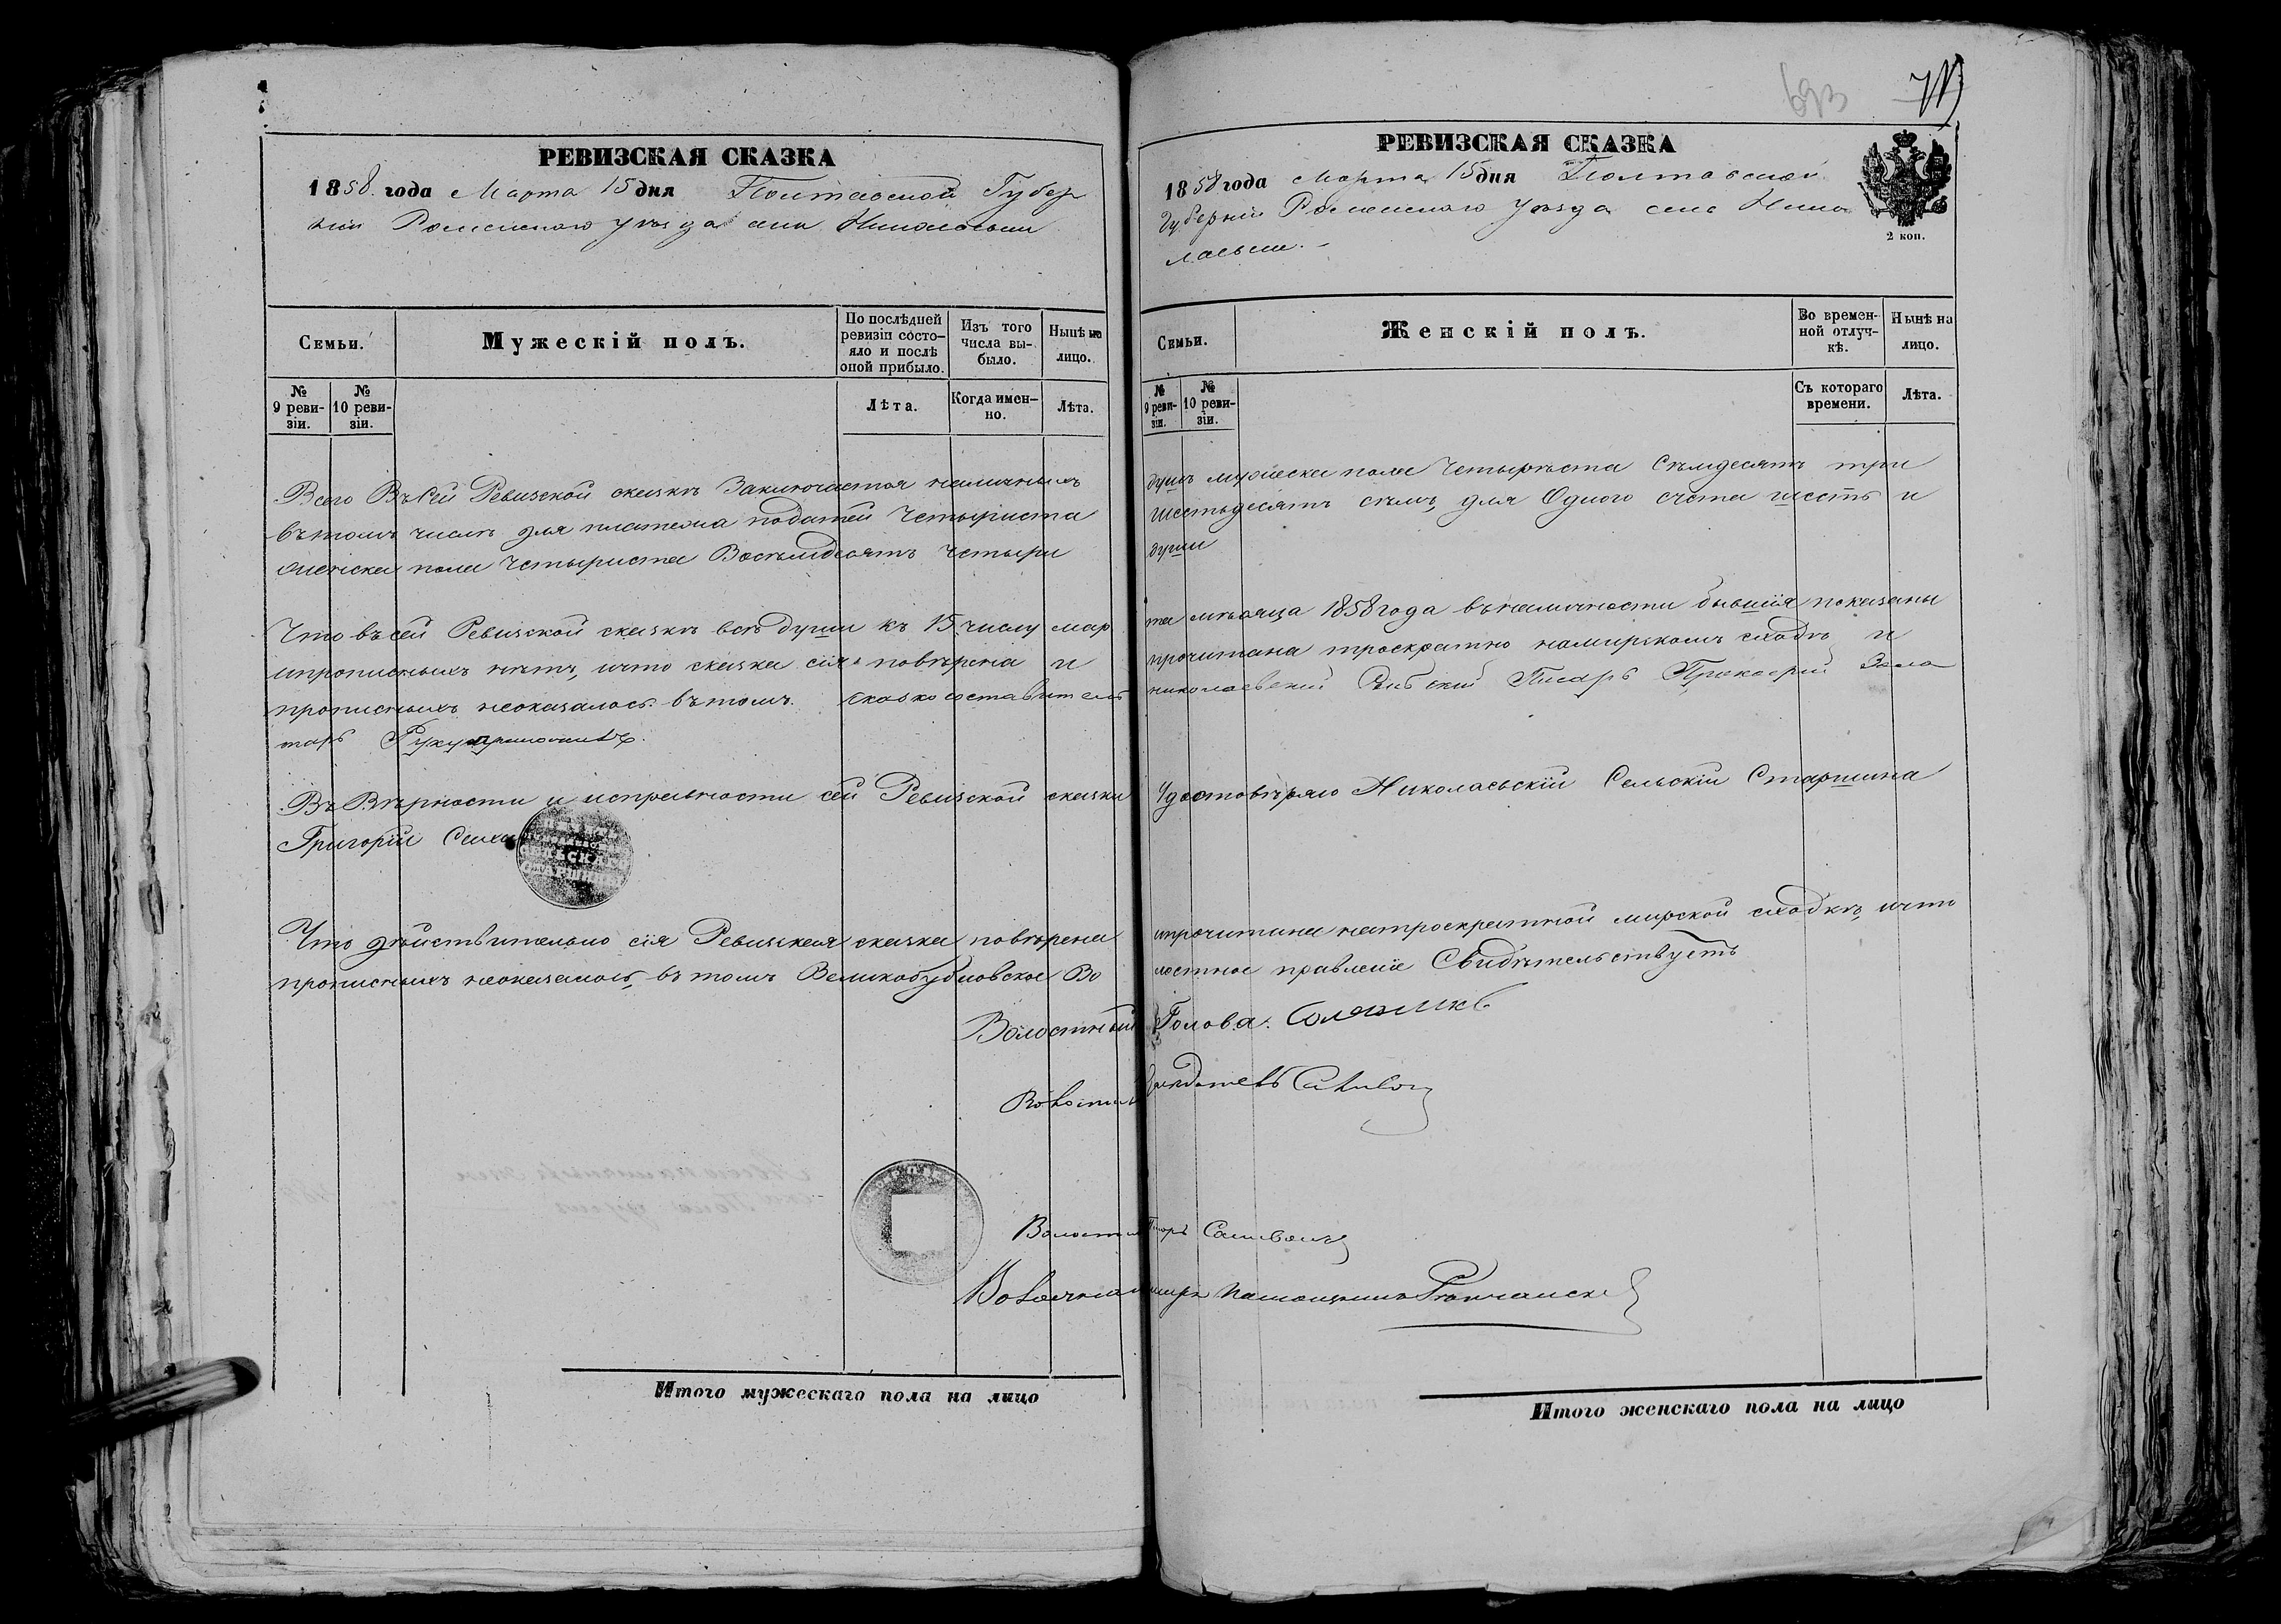 693
РЕВИЗСКАЯ СКАЗКА
1858 года Марта 15 дня Полтавской Губер
ніи Роменскаго Уѣзда села Николаевки
Семьи.
Мужескій полъ.
По послѣдней ревизіи состояло и послѣ оной прибыло.
Изъ того числа выбыло.
Нынѣ на лицо.
№ 9 ревизіи.
№ 10 ревизіи.
Лѣта.
Когда именно.
Лѣта.
РЕВИЗСКАЯ СКАЗКА
1858 года Марта 15 дня Полтавской
Губерніи Роменскаго Уѣзда села Нико
лаевки.
2 коп.
Семьи.
Женскій полъ.
Во временной отлучкѣ.
Нынѣ на лицо.
№ 9 ревизіи.
№ 10 ревизіи.
Съ котораго времени.
Лѣта.
Всего Въ Сей Ревизской сказкѣ Заключается наличныхъ душъ мужеска пола Четыреста Семдесятъ три
въ томъ числѣ для платежа податей Четыриста шестьдесятъ семъ, для Одного счета шесть и
женска пола Четыриста Восемдесятъ Четыри души
Что въ сей Ревизской сказкѣ всѣ души къ 15 числу мар та мѣсяца 1858 года въ наличности бывшія показаны
ипрописныхъ нѣтъ, ичто сказка сія повѣрена и прочитана троекратно намирскомъ сходѣ и
прописныхъ неоказалось. въ томъ сказкосоставитель николаевскій Сельскій Писарь Зола
тарь
Въ Вѣрности и исправности сей Ревизской сказки Удостовѣряю Николаевскій Сельскій Старшина
Григорій
Что дѣйствительно сія Ревизская сказка повѣрена ипрочитана натроекратной мирской сходкѣ, ичто
прописныхъ неоказалось, въ томъ Великобубновское Во лостное правленіе Свидѣтельствуетъ
Волостный Голова.
Волостн
Итого мужескаго пола на лицо
Итого женскаго пола на лицо